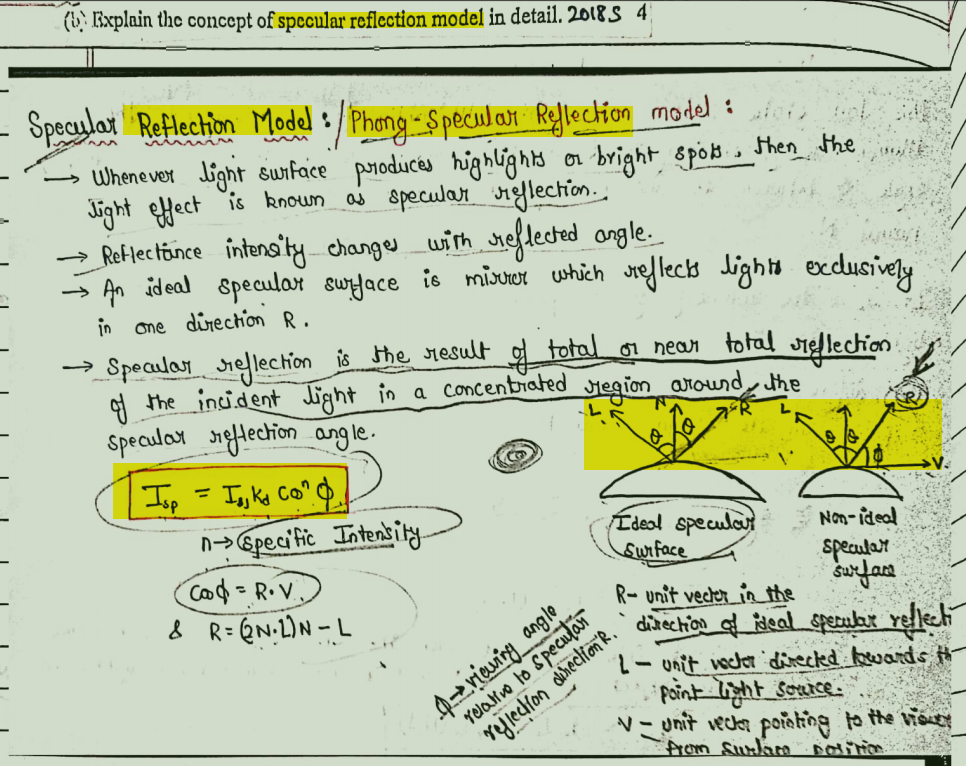 (b) Explain the concept of specular reflection model in detail. 2018S 4
Specular Reflection Model : / Phong-Specular Reflection model :
→ Whenever light surface produces highlights or bright spots, then the
light effect is known as specular reflection.
→ Reflectance intensity changes with reflected angle.
→ An ideal specular surface is mirror which reflects lights exclusively
in one direction R.
→ Specular reflection is the result of total or near total reflection
of the incident light in a concentrated region around the
specular reflection angle.
L N R
θ θ
L R
θ θ φ V
Ideal specular
surface
Non-ideal
specular
surface
I_sp = I_s,k_d cos^n φ
n → specific Intensity
cosφ = R·V
& R = (2N·L)N − L
φ → viewing angle
relative to specular
reflection direction R.
R- unit vector in the
direction of ideal specular reflect
L – unit vector directed towards th
point light source.
V – unit vector pointing to the viewe
from surface position